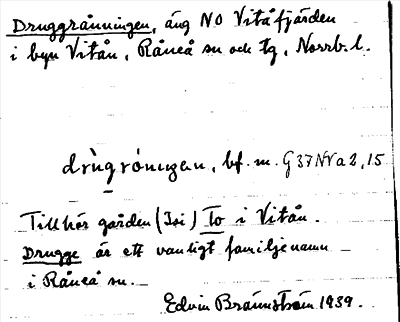 Druggrånningen, äng NO Vitåfjärden
i byn Vitån, Råneå sn och tg, Norrb. l.
drùgrónıŋen, bf. m. G37NVa2,15
Tillhör gården (Isi) To i Vitån.
Drugge är ett vanligt familjenamn
i Råneå sn.
Edvin Brännström 1939.